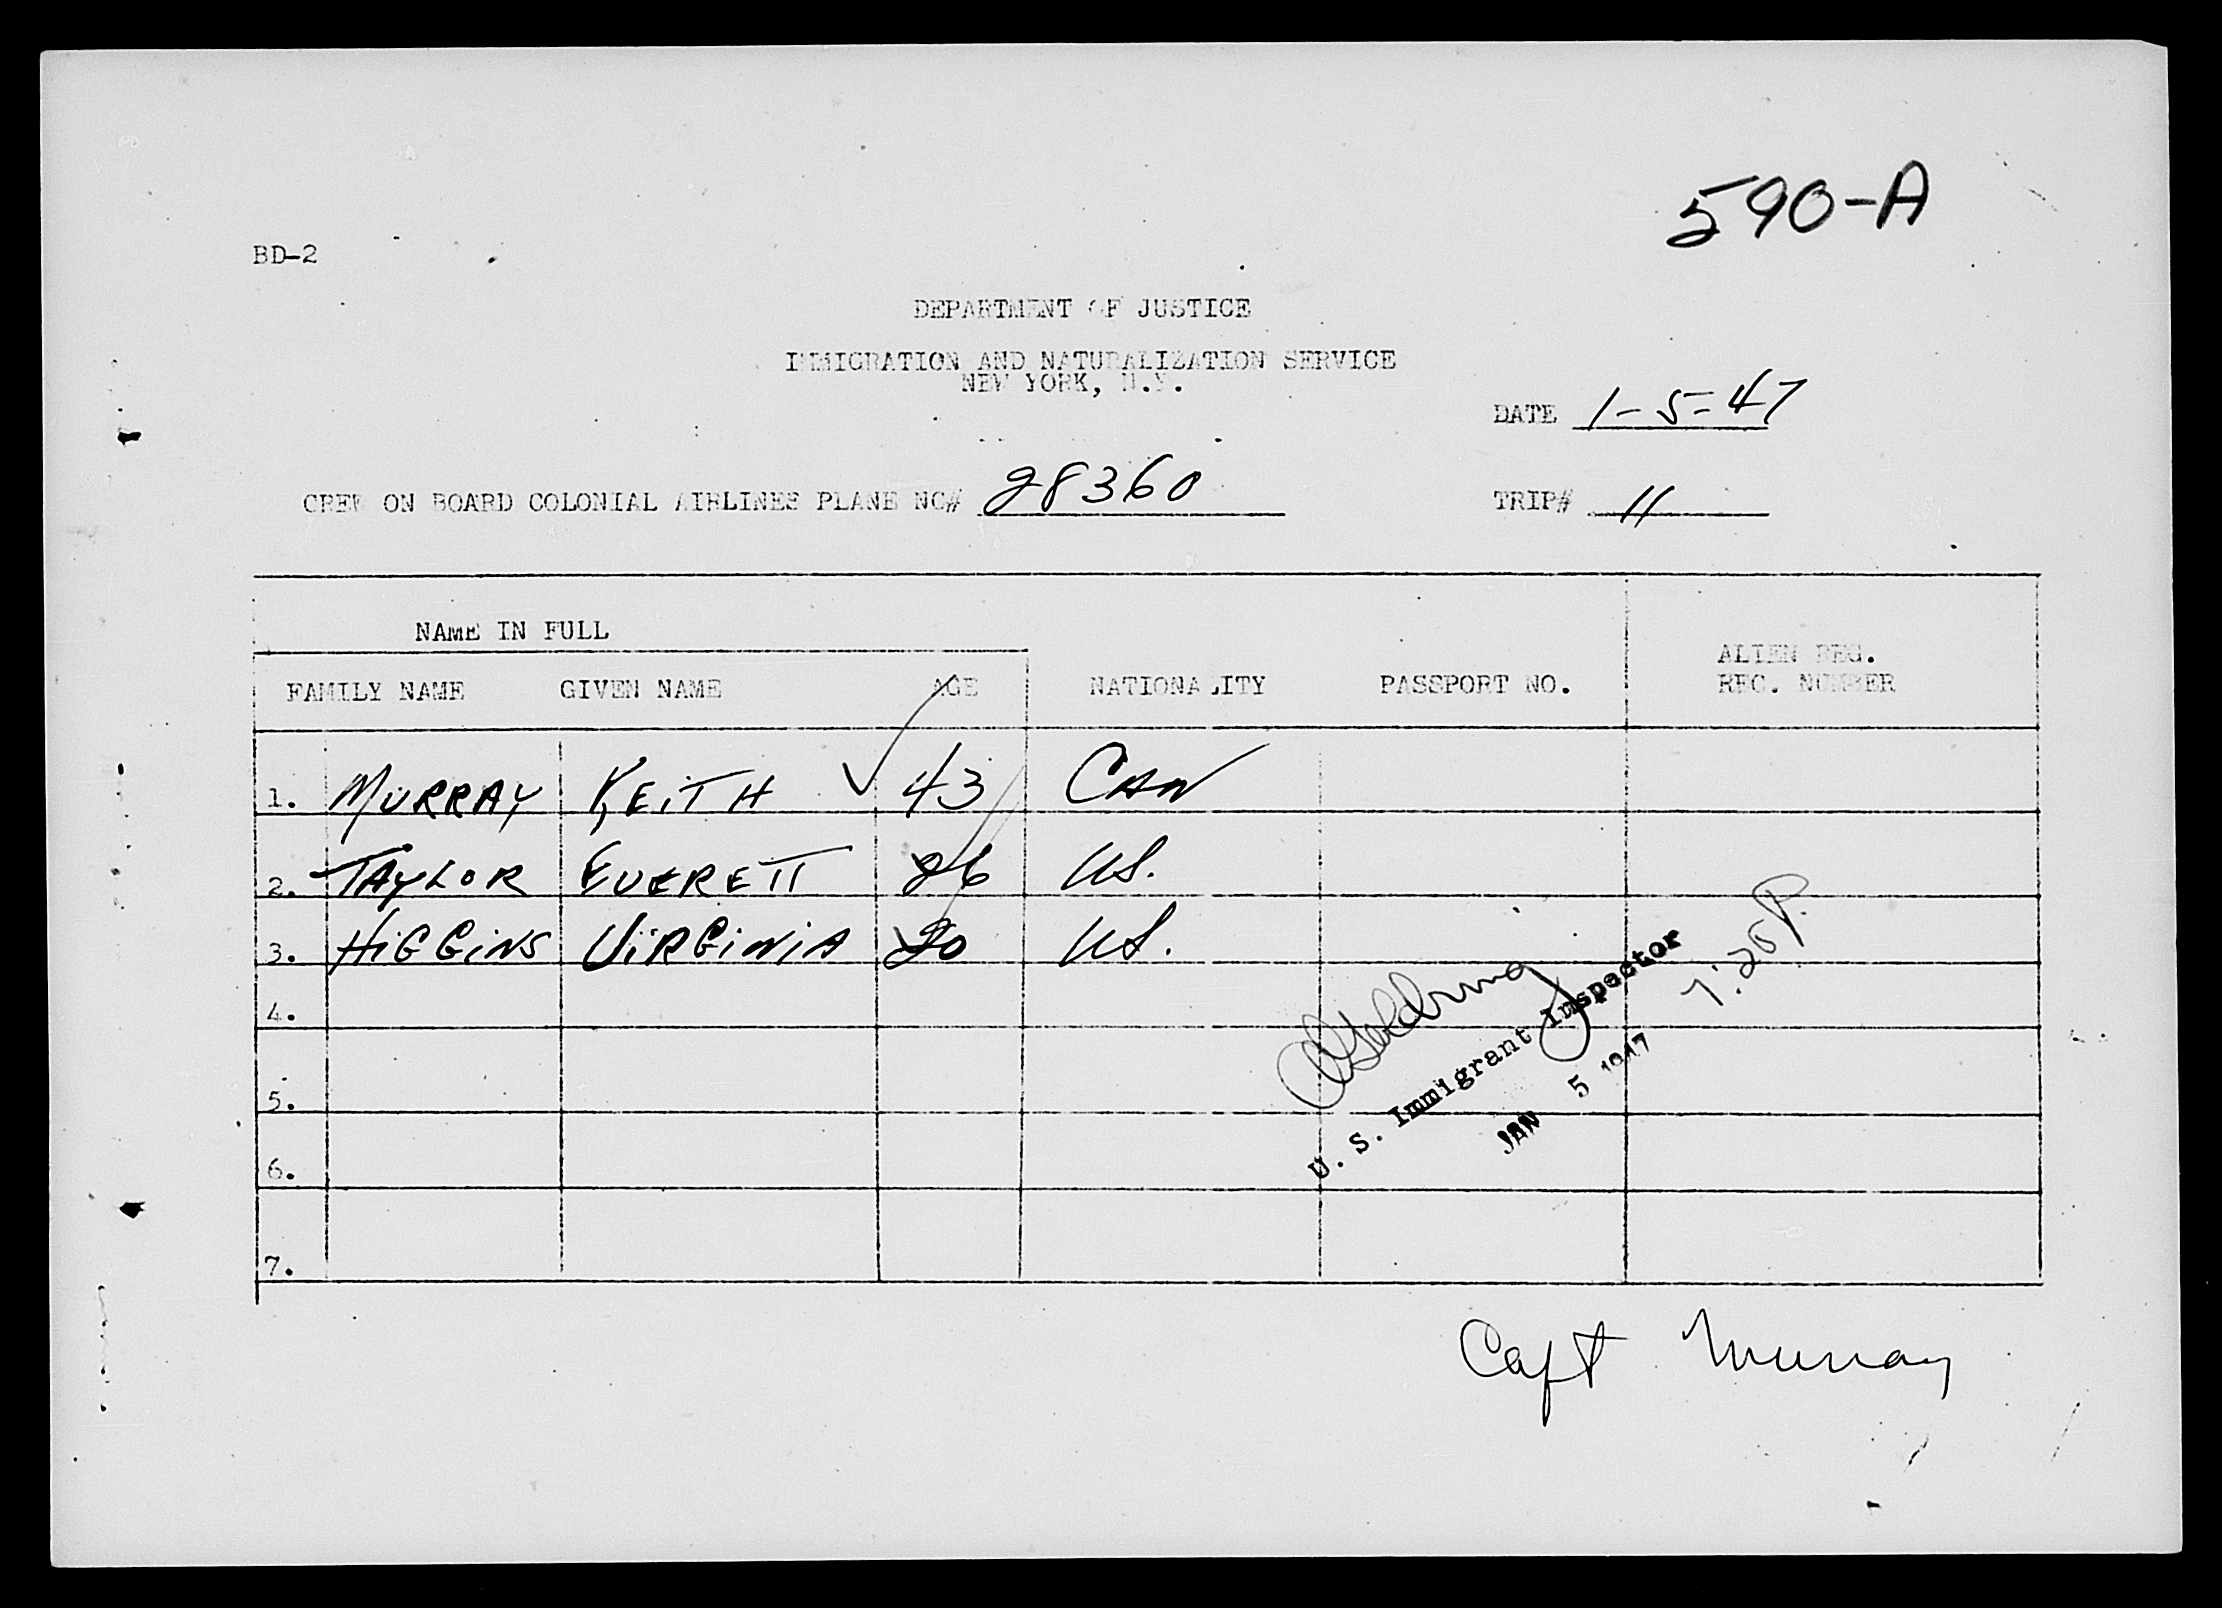 590-A
BD-2
DEPARTMENT OF JUSTICE
IMMIGRATION AND NATURALIZATION SERVICE
NEW YORK, N.Y.
DATE 1-5-47
CREW ON BOARD COLONIAL AIRLINES PLANE NC# 28360 TRIP# 11
NAME IN FULL
FAMILY NAME GIVEN NAME AGE NATIONALITY PASSPORT NO. ALIEN REG. REC. NUMBER
1. MURRAY KEITH 43 CAN
2. TAYLOR EVERETT 26 US.
3. HIGGINS VIRGINIA 20 US.
4.
5.
6.
7.
U. S. Immigrant Inspector
JAN 5 1947
7:20P.
Capt Murray